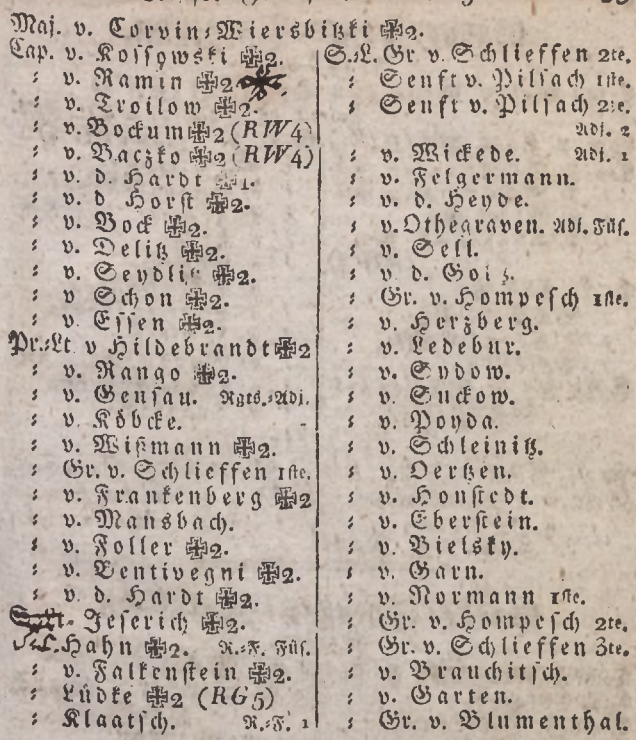 Maj. v. Corvin-Wiersbitzki ✠2.
Cap. v. Kossowski ✠2.
: v. Ramin ✠2.
: v. Troilow ✠2.
: v. Bockum ✠2 (RW4)
: v. Baczko ✠2 (RW4)
: v. d. Hardt ✠1.
: v. d Horst ✠2.
: v. Bock ✠2.
: v. Delitz ✠2.
: v. Seydlitz ✠2.
: v Schon ✠2.
: v. Essen ✠2.
Pr.-Lt. v Hildebrandt ✠2
: v. Rango ✠2.
: v. Gensau. Rgts.-Adj.
: v. Köbcke.
: v. Wißmann ✠2.
: Gr. v. Schlieffen 1ste.
: v. Frankenberg ✠2
: v. Mansbach.
: v. Foller ✠2.
: v. Bentivegni ✠2.
: v. d. Hardt ✠2.
Jeserich ✠2.
S.L. Hahn ✠2. R.-F. Füs.
: v. Falkenstein ✠2.
: Lüdke ✠2 (RG5)
: Klaatsch. R.-F. 1
S.-L. Gr. v. Schlieffen 2te.
: Senft v. Pilsach 1ste.
: Senft v. Pilsach 2te.
Adj. 2
: v. Wickede. Adj. 1
: v. Felgermann.
: v. d. Heyde.
: v. Othegraven. Adj. Füs.
: v. Sell.
: v. d. Goltz.
: Gr. v. Hompesch 1ste.
: v. Herzberg.
: v. Ledebur.
: v. Sydow.
: v. Suckow.
: v. Poyda.
: v. Schleinitz.
: v. Oertzen.
: v. Honstedt.
: v. Eberstein.
: v. Bielsky.
: v. Garn.
: v. Normann 1ste.
: Gr. v. Hompesch 2te.
: Gr. v. Schlieffen 3te.
: v. Brauchitsch.
: v. Garten.
: Gr. v. Blumenthal.